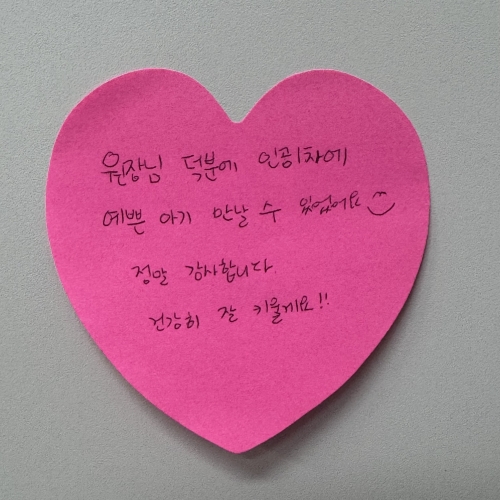 원장님 덕분에 인공1차에
예쁜 아기 만날 수 있었어요
정말 감사합니다.
건강히 잘 키울게요!!